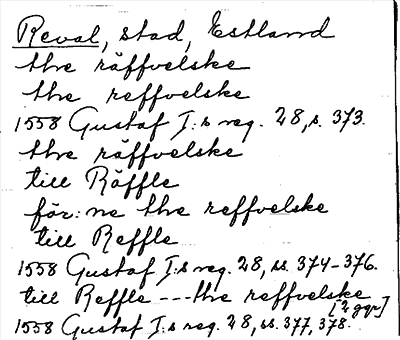 Reval, stad, Estland
the räffvelske
the reffvelske
1558 Gustaf I:s reg. 28, s. 373.
the räffvelske
till Räffle
för:ne the reffvelske
till Reffle
1558 Gustaf I:s reg. 28, ss. 374-376.
till Reffle --- the reffvelske
[2 ggr]
1558 Gustaf I:s reg. 28, ss. 377, 378.